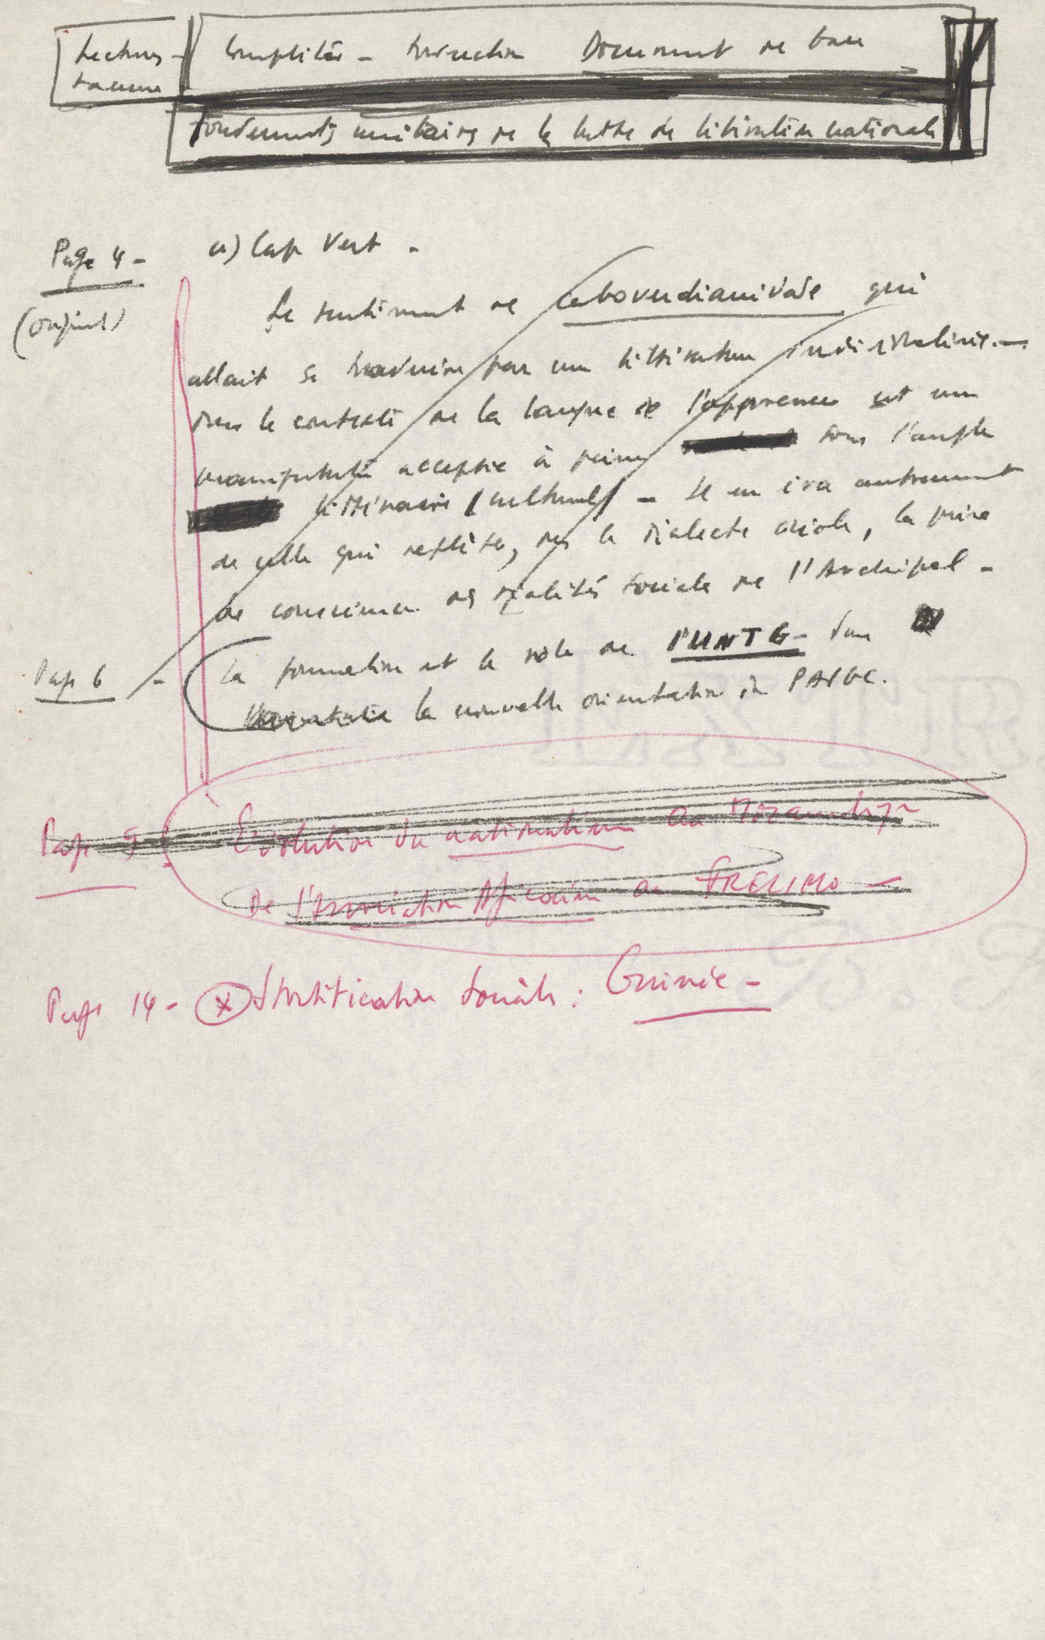 Lectures -
Compléter - Direction Document de base
Fondements unitaires de la lutte de libération nationale
Page 4 -
(original)
a) Cap Vert -
Le sentiment de caboverdianidade qui
allait se traduire par une littérature individualisée -
dans le contexte de la langue de l'oppresseur est une
manifestation acceptée à peine sous l'angle
littéraire (culturel) - Il en ira autrement
de celle qui reflète, dans le dialecte créole, la prise
de conscience des réalités sociales de l'Archipel -
Page 6 -
La formation et le rôle de l'UNTG - dans
la nouvelle orientation du PAIGC.
Page 5 -
Evolution du nationalisme au Mozambique
De l'Association Africaine au FRELIMO -
Page 14 - (x) Stratification sociale : Guinée -